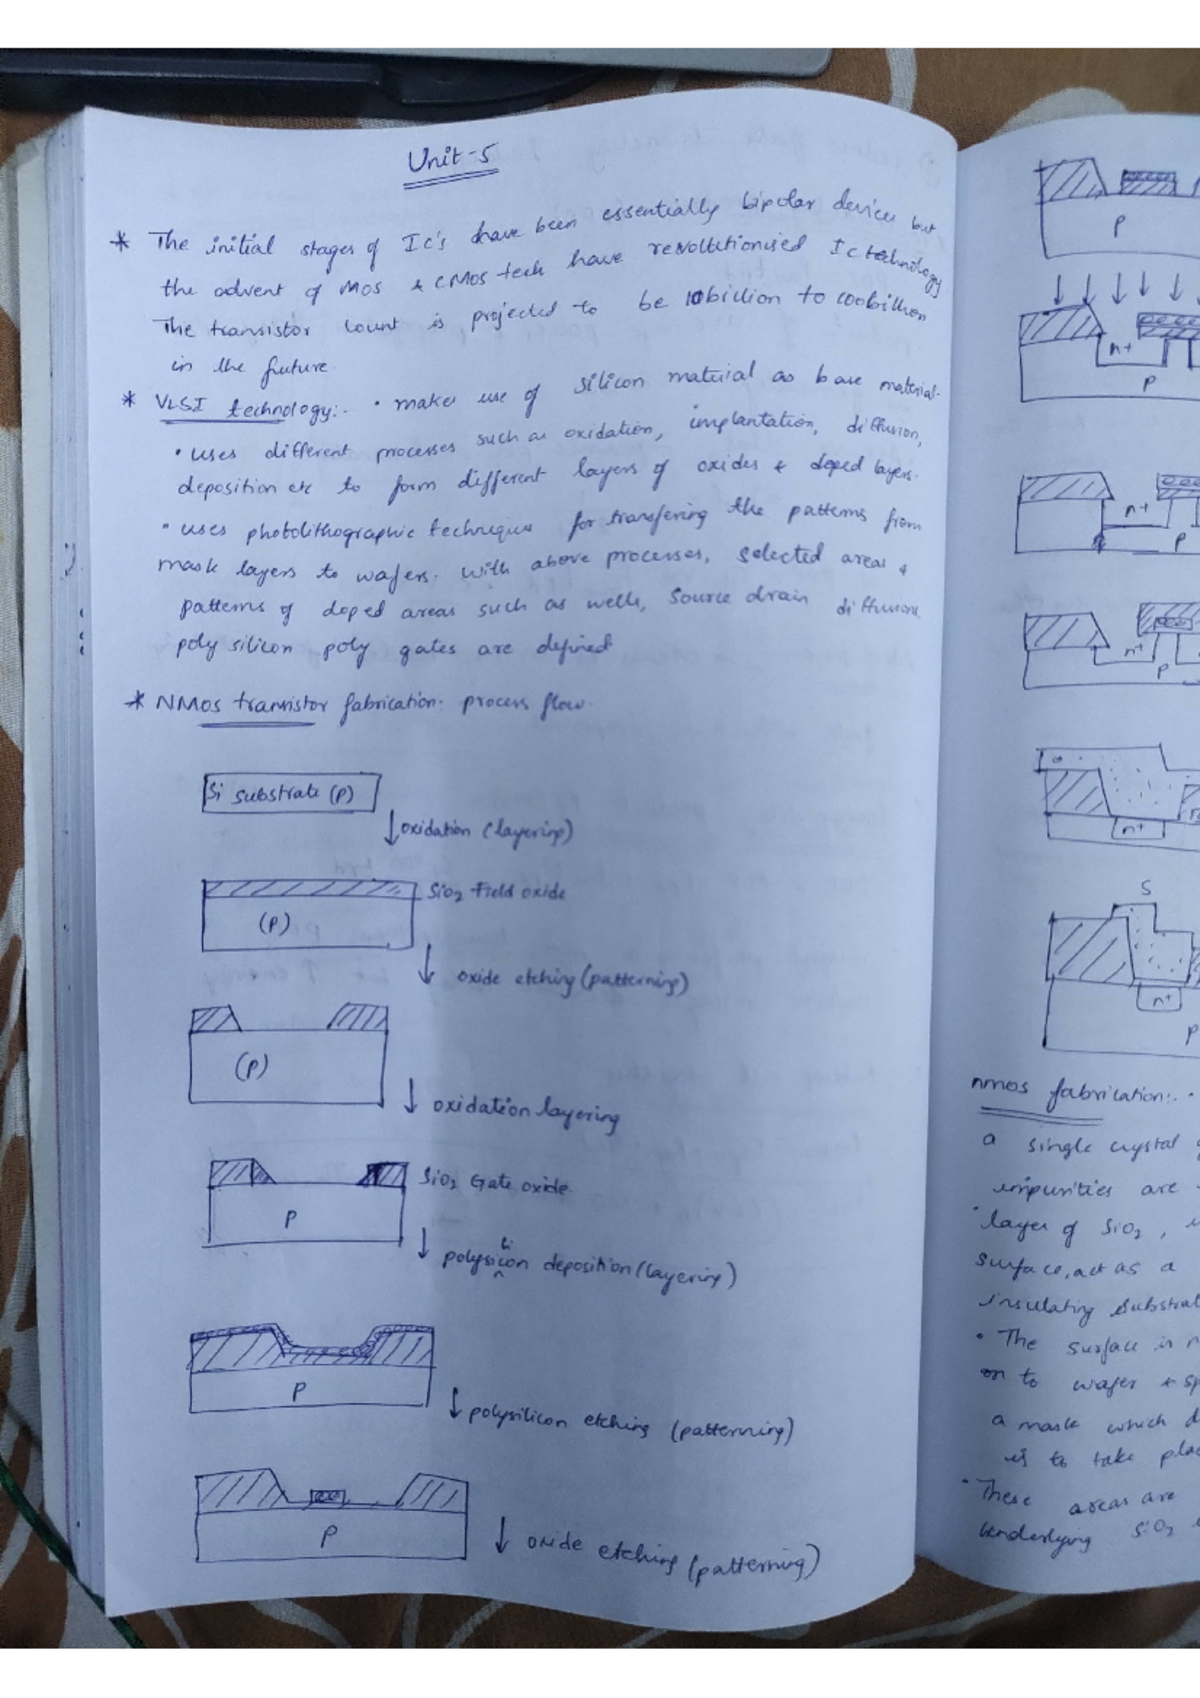 Unit-5
* The initial stages of Ic's have been essentially bipolar devices but
the advent of MOS & CMOS tech have revolutionised Ic technology
The transistor count is projected to be 10billion to 100billion
in the future.
* VLSI technology:- • makes use of silicon material as base material.
• uses different processes such as oxidation, implantation, diffusion,
deposition etc to form different layers of oxides & doped layers.
• uses photolithographic techniques for transfering the patterns from
mask layers to wafers. With above processes, selected areas &
patterns of doped areas such as wells, source drain diffusion
poly silicon poly gates are defined
* NMOS transistor fabrication: process flow.
Si substrate (P)
↓ oxidation (layering)
SiO2 Field oxide
(P)
↓ oxide etching (patterning)
(P)
↓ oxidation layering
SiO2 Gate oxide
P
↓ polysilicon deposition (layering)
P
↓ polysilicon etching (patterning)
P
↓ oxide etching (patterning)
P
n+
P
n+
P
n+
P
n+
S
n+
P
nmos fabrication:- •
a single crystal
impurities are
• layer of SiO2,
surface, act as a
insulating substrat
• The surface is
on to wafer & sp
a mask which d
is to take pla
• These areas are
underlying SiO2